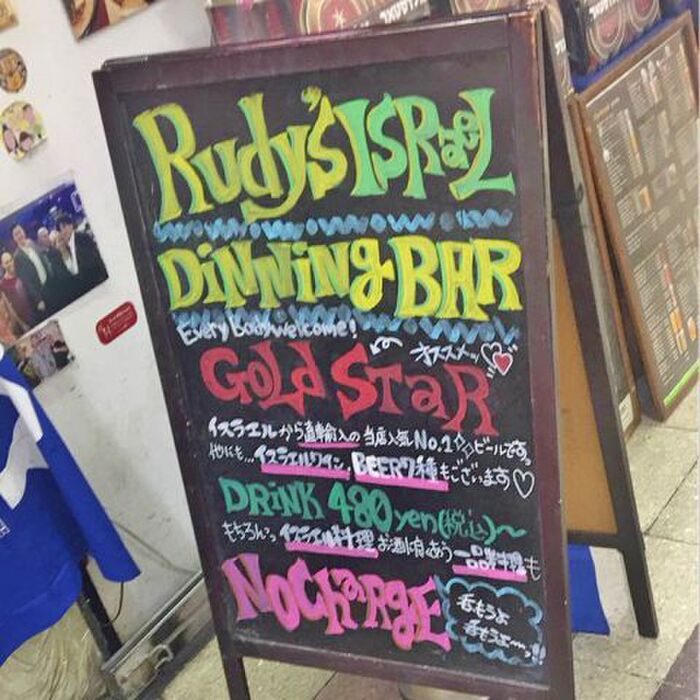 Rudy's ISRaeL
DiNNiNg BAR
Every body welcome!
オススメッ
GoLd STaR
イスラエルから直輸入の当店人気No.1ビールですっ
他にも…イスラエルワイン,BEER7種もございます♡
DRiNK 480yen(税込)～
もちろんっイスラエル料理お酒に合う一品料理も
NOCHaRgE
呑もうよ
呑もうよ～っ!!